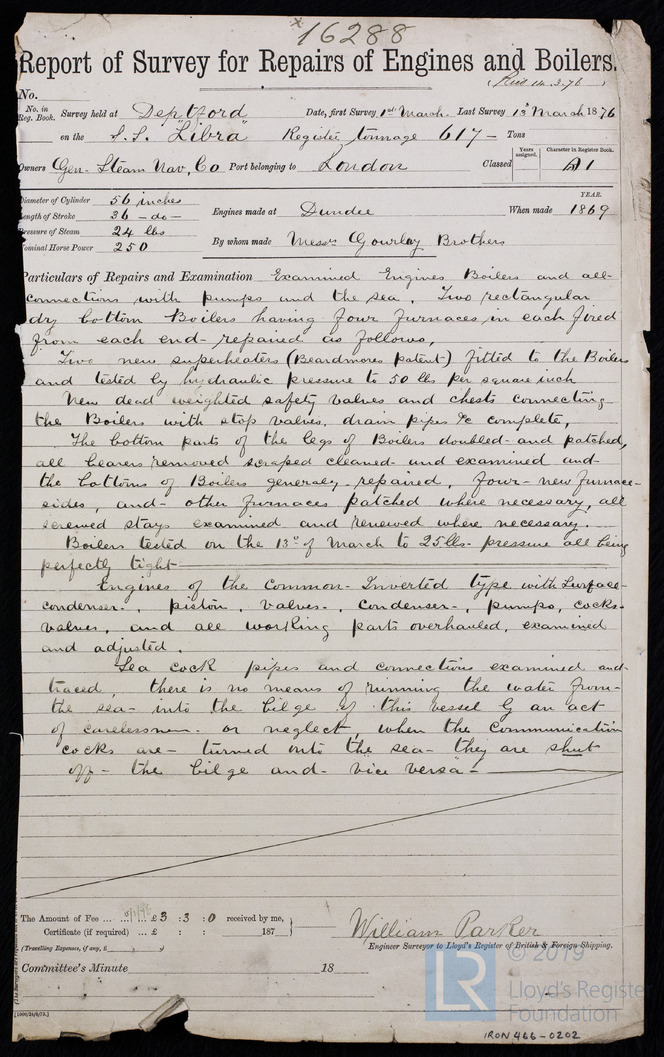 16288
Report of Survey for Repairs of Engines and Boilers.
(Recd 14.3.76)
No.
No. in Reg. Book. Survey held at Deptford Date, first Survey 1st March. Last Survey 13 March 1876
on the S.S. "Libra" Register tonnage 617 - Tons
Owners Gen. Steam Nav. Co Port belonging to London Classed Years assigned. Character in Register Book. A1
Diameter of Cylinder 56 inches
Length of Stroke 36 - do -
Pressure of Steam 24 lbs
Nominal Horse Power 250
Engines made at Dundee When made YEAR. 1869
By whom made Messrs Gourlay Brothers
Particulars of Repairs and Examination Examined Engines Boilers and all
connections with pumps and the sea. Two rectangular
dry bottom Boilers having four furnaces in each fired
from each end - repaired as follows,
Two new superheaters (Beardmores patent) fitted to the Boilers
and tested by hydraulic pressure to 50 lbs per square inch
New dead weighted safety valves and chests connecting
the Boilers with stop valves, drain pipes &c complete,
The bottom parts of the legs of Boilers doubled and patched,
all bearers removed scraped cleaned and examined and
the bottoms of Boilers generaly repaired, four - new furnace
sides, and other furnaces patched where necessary, all
screwed stays examined and renewed where necessary.
Boilers tested on the 13th of March to 25 lbs pressure all being
perfectly tight
Engines of the Common - Inverted type with Surface
condenser. piston, valves, condenser, pumps, cocks
valves, and all working parts overhauled, examined
and adjusted.
Sea cock pipes and connections examined and
traced, there is no means of running the water from
the sea into the bilge of this vessel by an act
of carelessness or neglect, when the communication
cocks are turned onto the sea they are shut
off - the bilge and vice versa -
The Amount of Fee ... £3 : 3 : 0 received by me,
Certificate (if required) ... £ : : 187
(Travelling Expenses, if any, £ )
William Parker
Engineer Surveyor to Lloyd's Register of British & Foreign Shipping.
Committee's Minute 18
© 2019
LR
Lloyd's Register
Foundation
IRON 466-0202